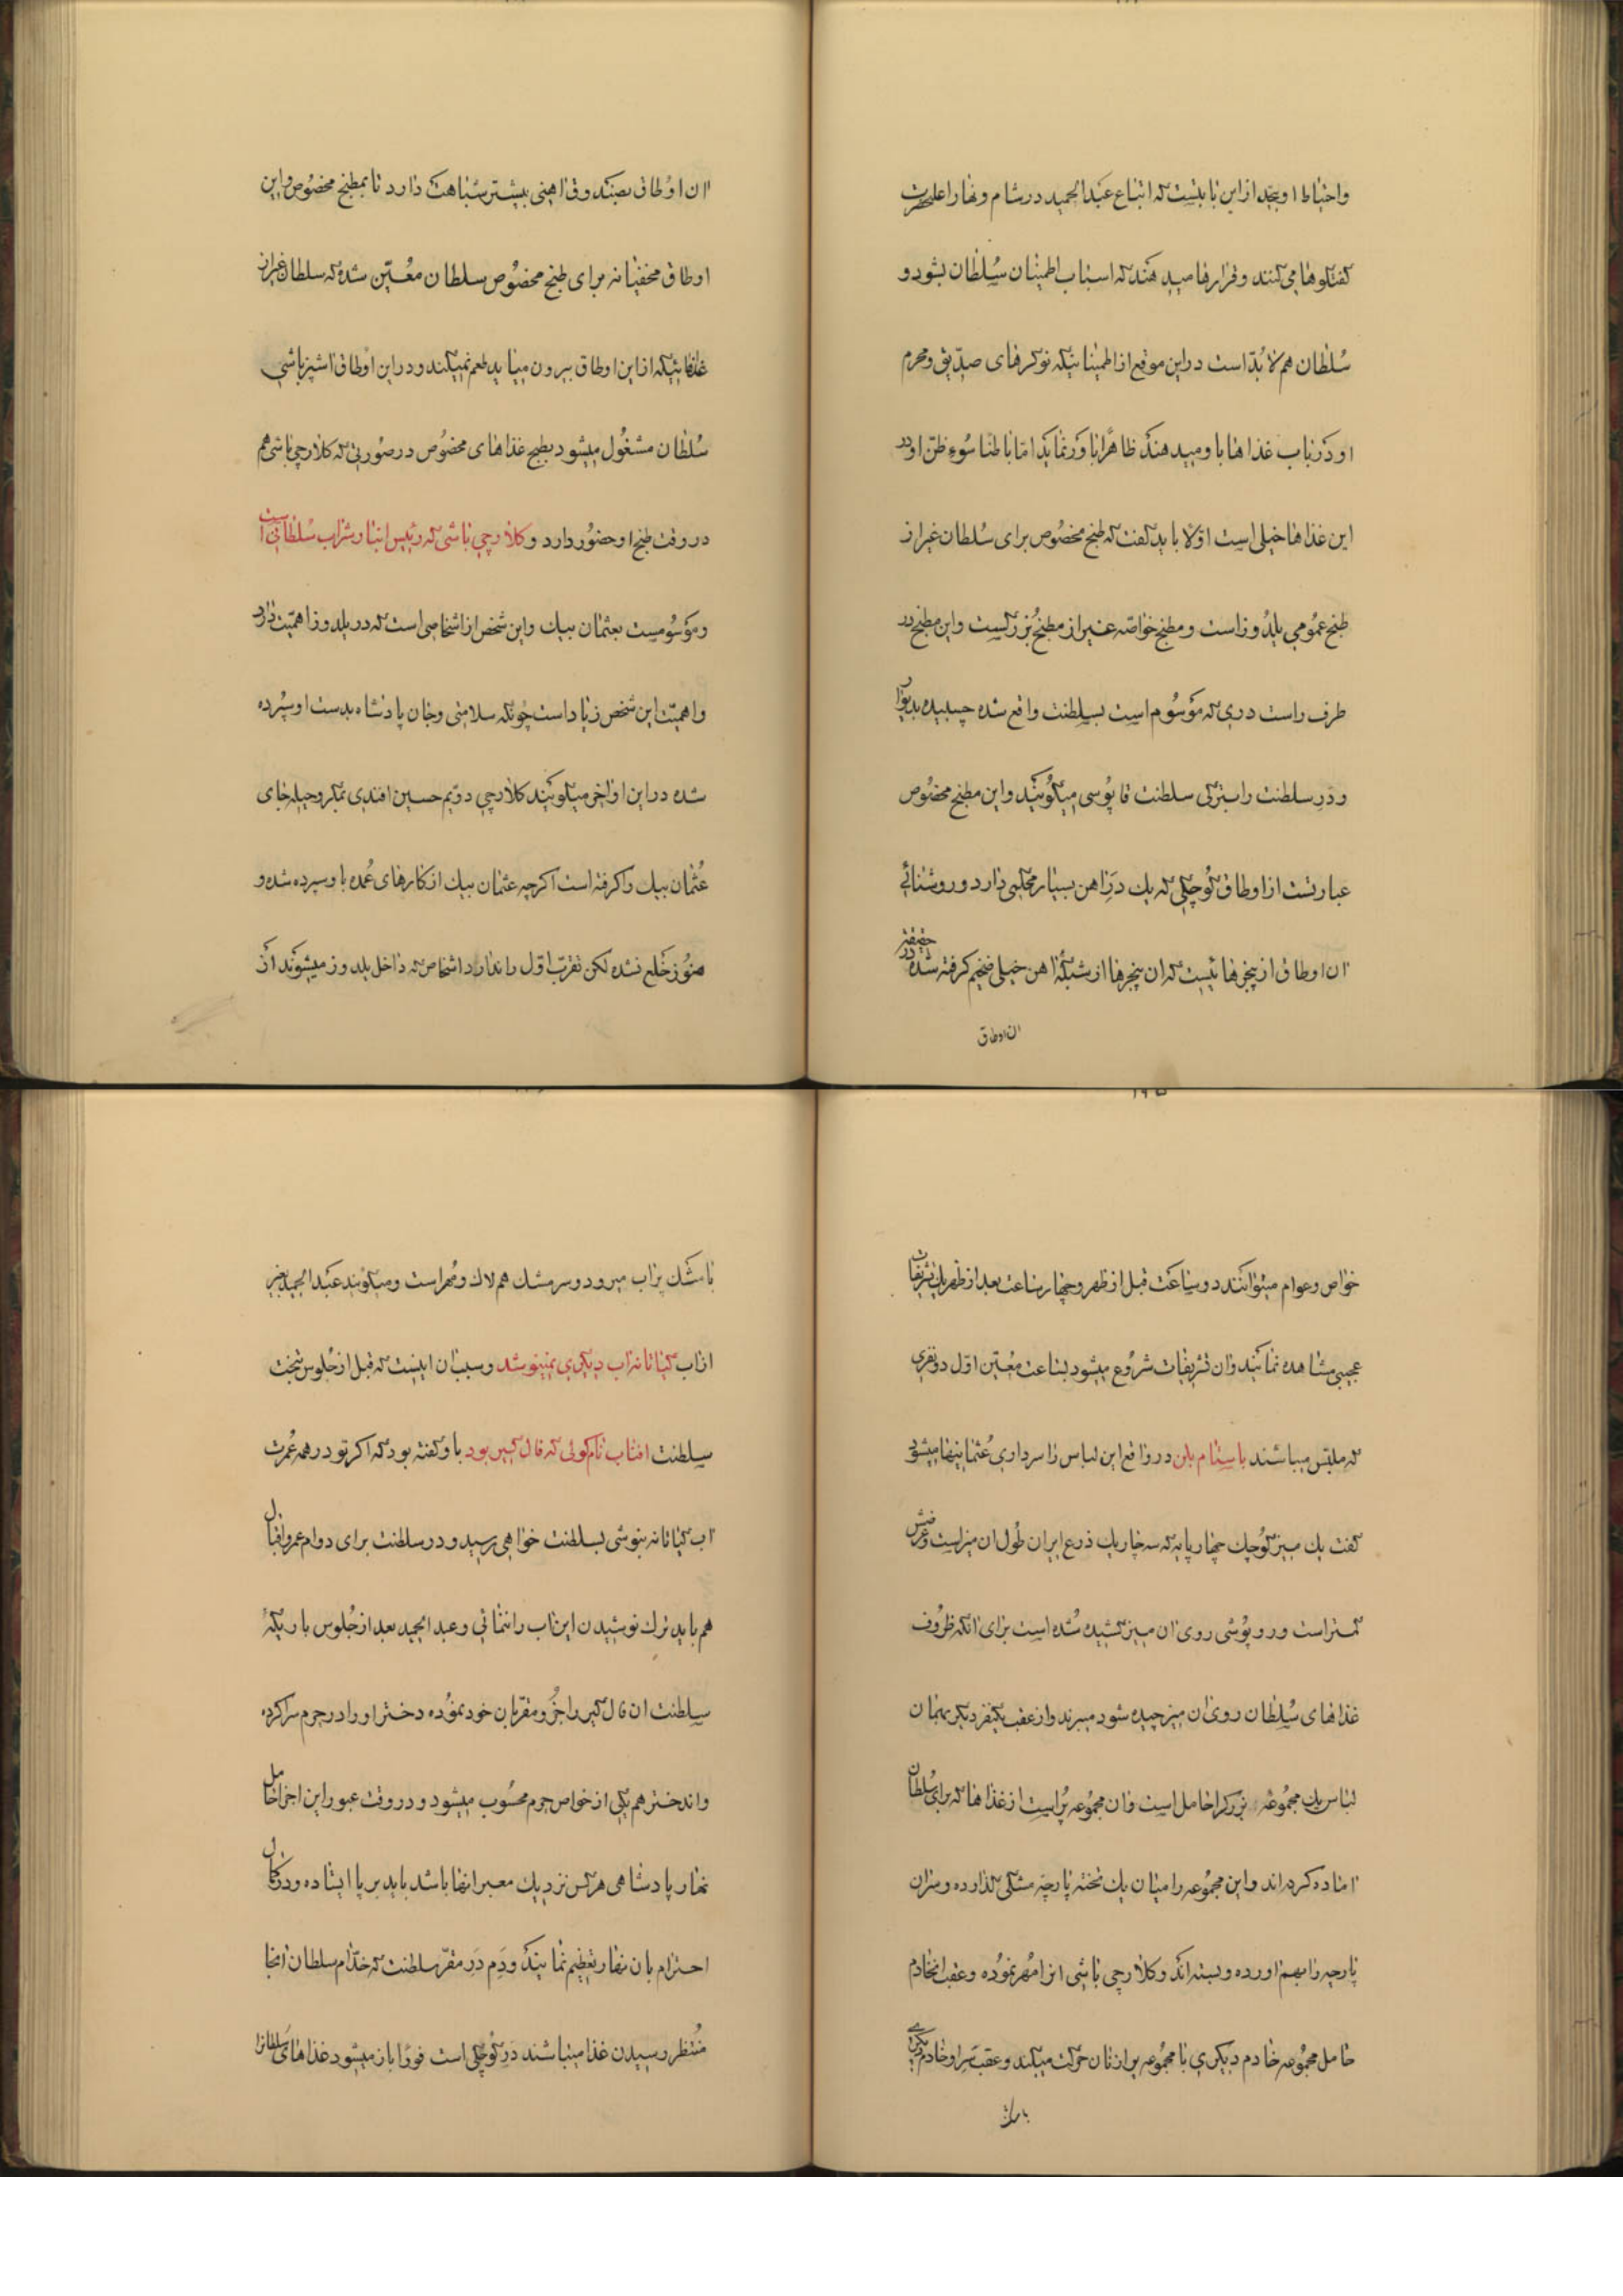 واحتیاط او بجد از این بابتست که اتباع عبدالحمید در شام و نهار اعلیحضرت
گفتگوها می‌کنند و قرارها میدهند که اسباب اطمینان سلطان بشود و
سلطان هم لابد است در این موقع از اطمینانیکه نوکرهای صدیق و محرم
او در باب غذاها باو میدهند ظاهرا باور نماید اما باطنا سوء ظن او در
این غذاها خیلی است اولا باید گفت که طبخ مخصوص برای سلطان غیر از
طبخ عمومی یلدوز است و مطبخ خاصه غیر از مطبخ بزرگست و این مطبخ در
طرف راست دری که موسوم است بسلطنت واقع شده چسبیده بدیوار
و در سلطنت را بترکی سلطنت قاپوسی میگویند و این مطبخ مخصوص
عبارتست از اوطاق کوچکی که یک در آهن بسیار محکمی دارد و روشنائی
آن اوطاق از پنجرهائیست که آن پنجرها از شبکهٔ آهن خیلی ضخیم گرفته شده در حقیقة
آن اوطاق
آن اوطاق بصندوق آهنی بیشتر شباهت دارد تا بمطبخ مخصوص و این
اوطاق مخفیانه برای طبخ مخصوص سلطان معین شده که سلطان غیر از
غذائیکه از این اوطاق بیرون میاید طعم نمیکند و در این اوطاق آشپزباشی
سلطان مشغول میشود بطبخ غذاهای مخصوص در صورتی که کلارچی باشی هم
در وقت طبخ او حضور دارد و کلارچی باشی که رئیس انبار شراب سلطانی است
و موسومست بعثمان بیک و این شخص از اشخاصی است که در یلدوز اهمیت دارد
و اهمیت این شخص زیاد است چونکه سلامتی و جان پادشاه بدست او سپرده
شده در این اواخر میگویند کلارچی دویم حسین افندی بمکر و حیله جای
عثمان بیک را گرفته است اگر چه عثمان بیک از کارهای عمده باو سپرده شده و
هنوز خلع نشده لکن تقرب اول را ندارد اشخاص که داخل یلدوز میشوند از
۱۹۵
خواص و عوام میتوانند دو ساعت قبل از ظهر و چهار ساعت بعد از ظهر یک تشریفات
عجیبی مشاهده نمایند و آن تشریفات شروع میشود بساعت معین اول دو نفری
که ملبس میباشند باستامبلن در واقع این لباس را سرداری عثمانیها میشود
گفت یک میز کوچک چهار پایه که سه چاریک ذرع ایران طول آن میز است و عرضش
کمتر است و روپوشی روی آن میز کشیده شده است برای آنکه ظروف
غذاهای سلطان روی آن میز چیده شود میبرند و از عقب یکنفر دیگر بهمان
لباس یک مجموعه بزرگ را حامل است و آن مجموعه پر است از غذاها که برای سلطان
آماده کرده‌اند و این مجموعه را میان یک تخته پارچه مشکی گذارده و سران
پارچه را بهم آورده و بسته‌اند و کلارچی باشی آنرا مهر نموده و عقب آنخادم
حامل مجموعه خادم دیگری با مجموعه پر از نان حرکت میکند و عقب سر او خادم دیگری
با مشک
با مشک پر آب میرود و سر مشک هم لاک و مهر است و میگویند عبدالحمید بغیر
از آب کیاتانه آب دیگری نمینوشد و سبب آن اینست که قبل از جلوس بتخت
سلطنت آفتاب نام کولی که فال گیر بود باو گفته بود که اگر تو در همه عمرت
آب کیاتانه بنوشی بسلطنت خواهی رسید و در سلطنت برای دوام عمر و اقبال
هم باید ترک نوشیدن این آب را ننمائی و عبدالحمید بعد از جلوس باریکهٔ
سلطنت آن فال گیر را جزو مقربان خود نموده دختر او را در حرم سرا کرده
و آندختر هم یکی از خواص حرم محسوب میشود و در وقت عبور این اجزا حامل
نهار پادشاهی هر کس نزدیک معبر آنها باشد باید بر پا ایستاده و در کمال
احترام بآن نهار تعظیم نمایند و دم در مقر سلطنت که خدام سلطان آنجا
منتظر رسیدن غذا میباشند در کوچکی است فورا باز میشود غذاهای سلطانرا